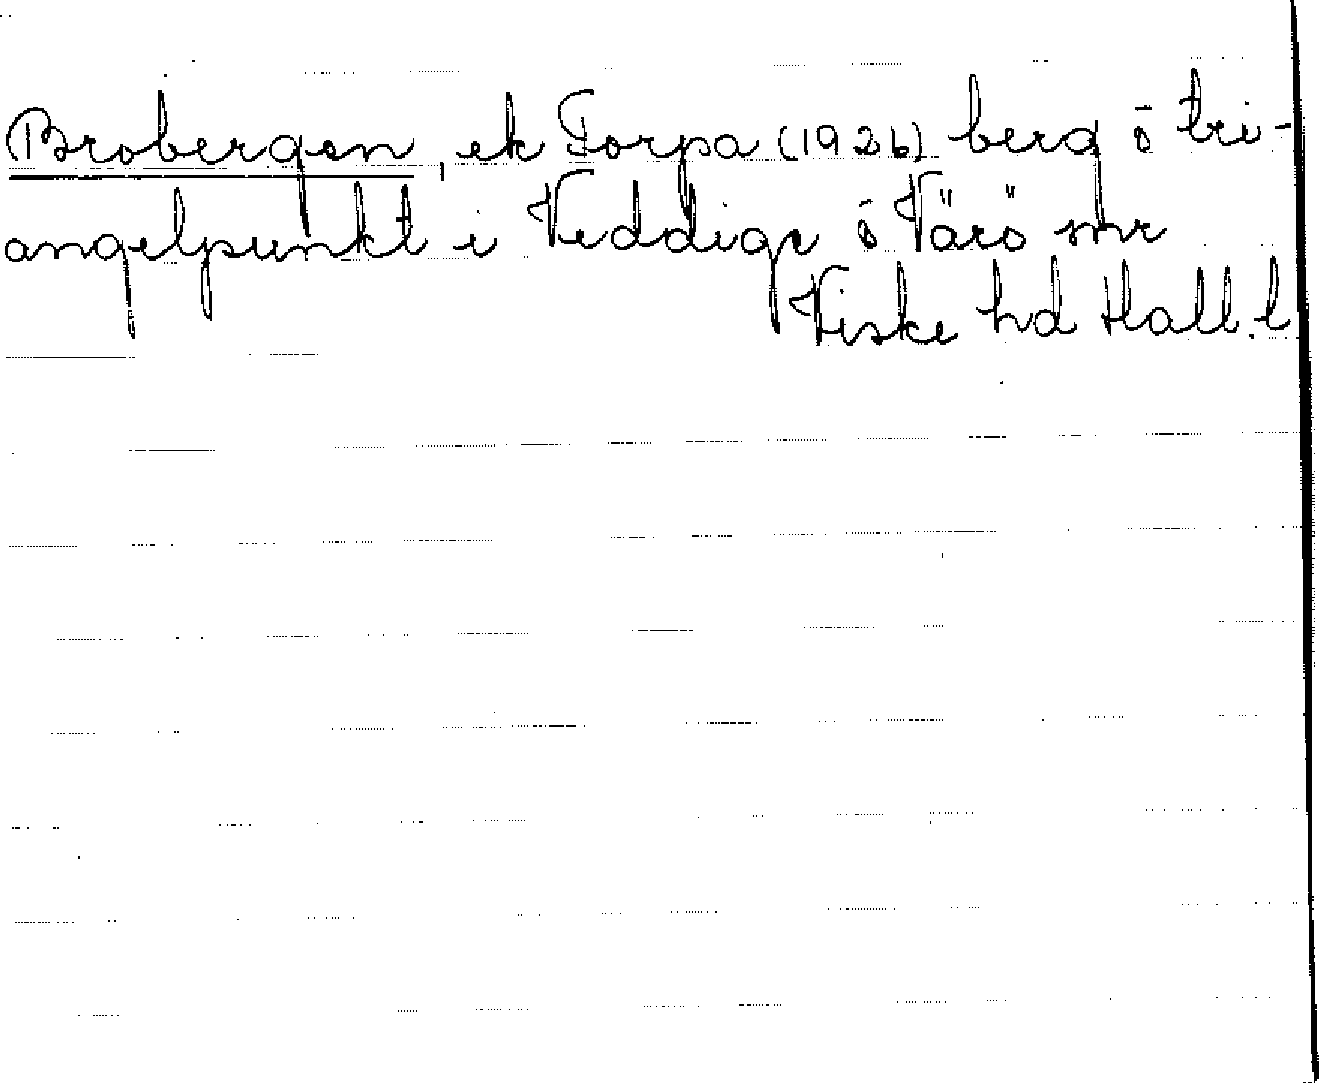 Brobergen, ek Torpa (1926) berg ō tri-
angelpunkt i Veddige ō Värö snr
Viske hd Hall. l